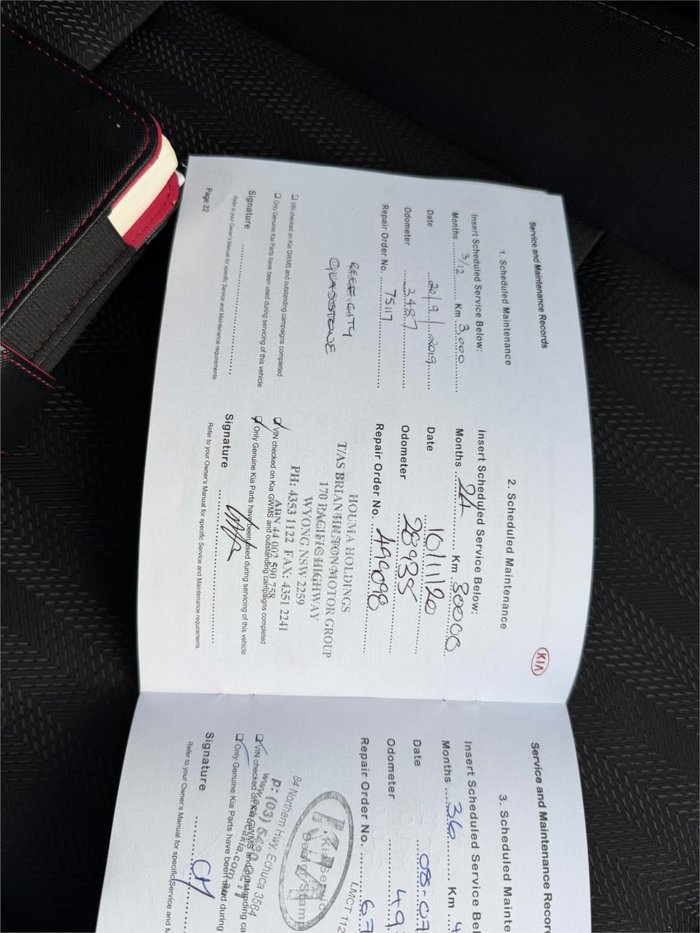 Service and Maintenance Records
1. Scheduled Maintenance
Insert Scheduled Service Below:
Months 3/12 Km 3,000
Date 20/9/2019
Odometer 3487
Repair Order No. 75117
GLADSTONE
VIN checked on Kia GWMS and outstanding campaigns completed
Only Genuine Kia Parts have been used during servicing of this vehicle
Signature
Refer to your Owner's Manual for specific Service and Maintenance requirements
Page 32
KIA
2. Scheduled Maintenance
Insert Scheduled Service Below:
Months 24 Km 30000
Date 10/11/20
Odometer 28935
Repair Order No. 499098
HOUMA HOLDINGS
T/AS BRIAN HILTON MOTOR GROUP
170 PACIFIC HIGHWAY
WYONG NSW 2259
PH: 4353 1122 FAX: 4351 2241
ABN 44 002 590 758
VIN checked on Kia GWMS and outstanding campaigns completed
Only Genuine Kia Parts have been used during servicing of this vehicle
Signature
Refer to your Owner's Manual for specific Service and Maintenance requirements
Service and Maintenance Recor
3. Scheduled Mainte
Insert Scheduled Service Bel
Months 36 Km 4
Date 08-07
Odometer 49
Repair Order No. 67
LMCT 112
KIA
Dealer Stamp
64 Northern Hwy, Echuca 3564
P: (03)
VIN checked on Kia GWMS and outstanding ca
Only Genuine Kia Parts have been used during
Signature CM
Refer to your Owner's Manual for specific Service and M